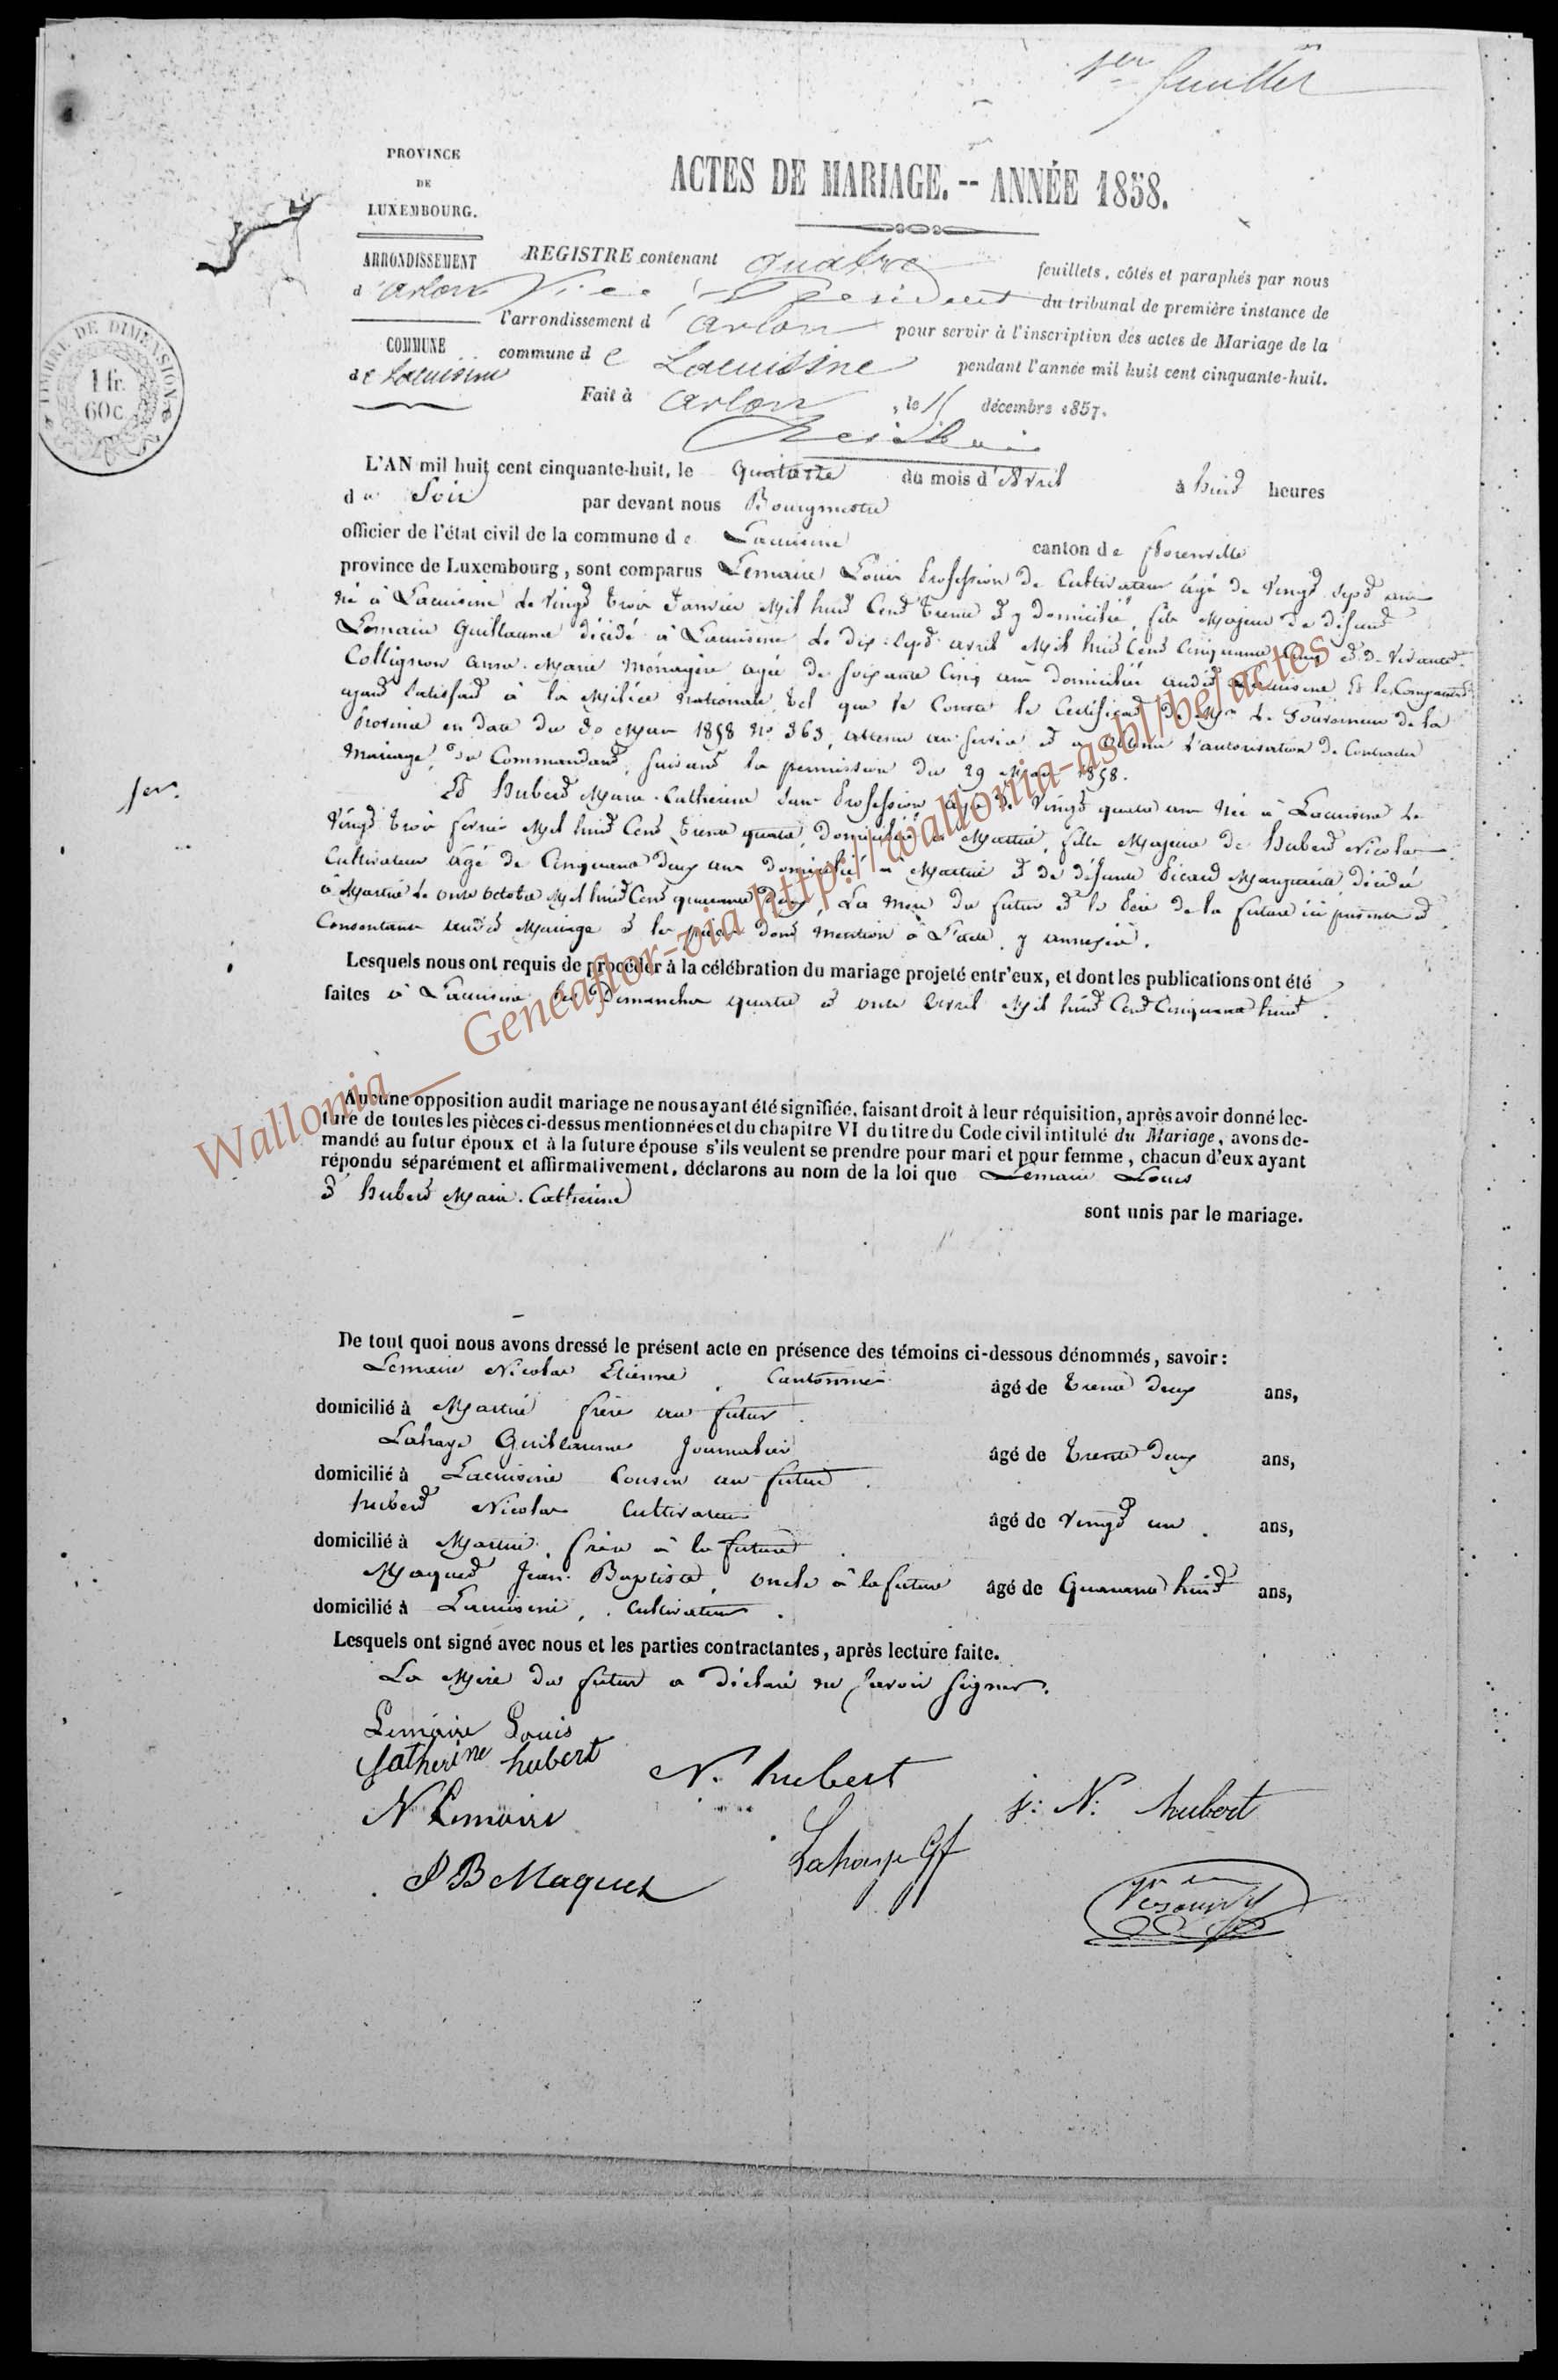 1er feuillet
PROVINCE
DE
LUXEMBOURG.
ACTES DE MARIAGE. -- ANNÉE 1858.
ARRONDISSEMENT
d'arlon
COMMUNE
de Lacuisine
TIMBRE DE DIMENSION
1 fr.
60 c.
REGISTRE contenant quatre feuillets, côtés et paraphés par nous
Vice Président du tribunal de première instance de
l'arrondissement d'arlon pour servir à l'inscription des actes de Mariage de la
commune de Lacuisine pendant l'année mil huit cent cinquante-huit.
Fait à arlon, le 15 décembre 1857.
L'AN mil huit cent cinquante-huit, le quatorze du mois d'Avril à huit heures
du Soir par devant nous Bourgmestre
officier de l'état civil de la commune de Lacuisine canton de florenville
province de Luxembourg, sont comparus Lemaire Louis Profession de Cultivateur âgé de Vingt Sept ans
né à Lacuisine le Vingt trois Janvier Mil huit Cent trente et y domicilié, fils Majeur de défunt
Lemaire Guillaume décédé à Lacuisine le dix Sept avril Mil huit Cent Cinquante Cinq et de Vivante
Collignon Anne Marie Ménagère agée de soixante Cinq ans domiciliée audit Lacuisine, Et le Comparant
ayant Satisfait à la Milice Nationale, tel que le Conste le Certificat de Mr le Gouverneur de la
Province en date du 30 Mars 1858 No 363, attenu au service et a obtenu l'autorisation de Contracter
Mariage, du Commandant, suivant la permission du 29 Mars 1858.
1er.
Et Hubert Marie Catherine Sans Profession agée de Vingt quatre ans née à Lacuisine le
Vingt trois fevrier Mil huit Cent trente quatre, domiciliée à Martué, fille Majeure de Hubert Nicolas
Cultivateur âgé de Cinquante Deux ans domicilié à Martué et de défunte Picard Marguerite décédée
à Martué le onze octobre Mil huit Cent quarante deux, La Mère du futur et le Père de la future ici présents et
Consentants audit Mariage et les pièces dont mention à l'acte, y annexées.
Lesquels nous ont requis de procéder à la célébration du mariage projeté entr'eux, et dont les publications ont été
faites à Lacuisine les Dimanches quatre et onze avril Mil huit Cent Cinquante huit.
Aucune opposition audit mariage ne nous ayant été signifiée, faisant droit à leur réquisition, après avoir donné lec-
ture de toutes les pièces ci-dessus mentionnées et du chapitre VI du titre du Code civil intitulé du Mariage, avons de-
mandé au futur époux et à la future épouse s'ils veulent se prendre pour mari et pour femme, chacun d'eux ayant
répondu séparément et affirmativement, déclarons au nom de la loi que Lemaire Louis
et Hubert Marie Catherine
sont unis par le mariage.
De tout quoi nous avons dressé le présent acte en présence des témoins ci-dessous dénommés, savoir:
Lemaire Nicolas Etienne, Cantonnier âgé de trente deux ans,
domicilié à Martué frère au futur.
Lahaye Guillaume Journalier âgé de trente deux ans,
domicilié à Lacuisine Cousin au futur.
hubert Nicolas Cultivateur âgé de Vingt un ans,
domicilié à Martué, frère à la future.
Maquet Jean Baptiste, oncle à la future âgé de Quarante huit ans,
domicilié à Lacuisine, Cultivateur.
Lesquels ont signé avec nous et les parties contractantes, après lecture faite.
La Mère du futur a déclaré ne savoir signer.
Lemaire Louis
Catherine hubert
N. hubert
j: N: hubert
N Lemaire
Lahaye G
J B Maquet
Wallonia __ Geneaflor-via http://wallonia-asbl/be/actes